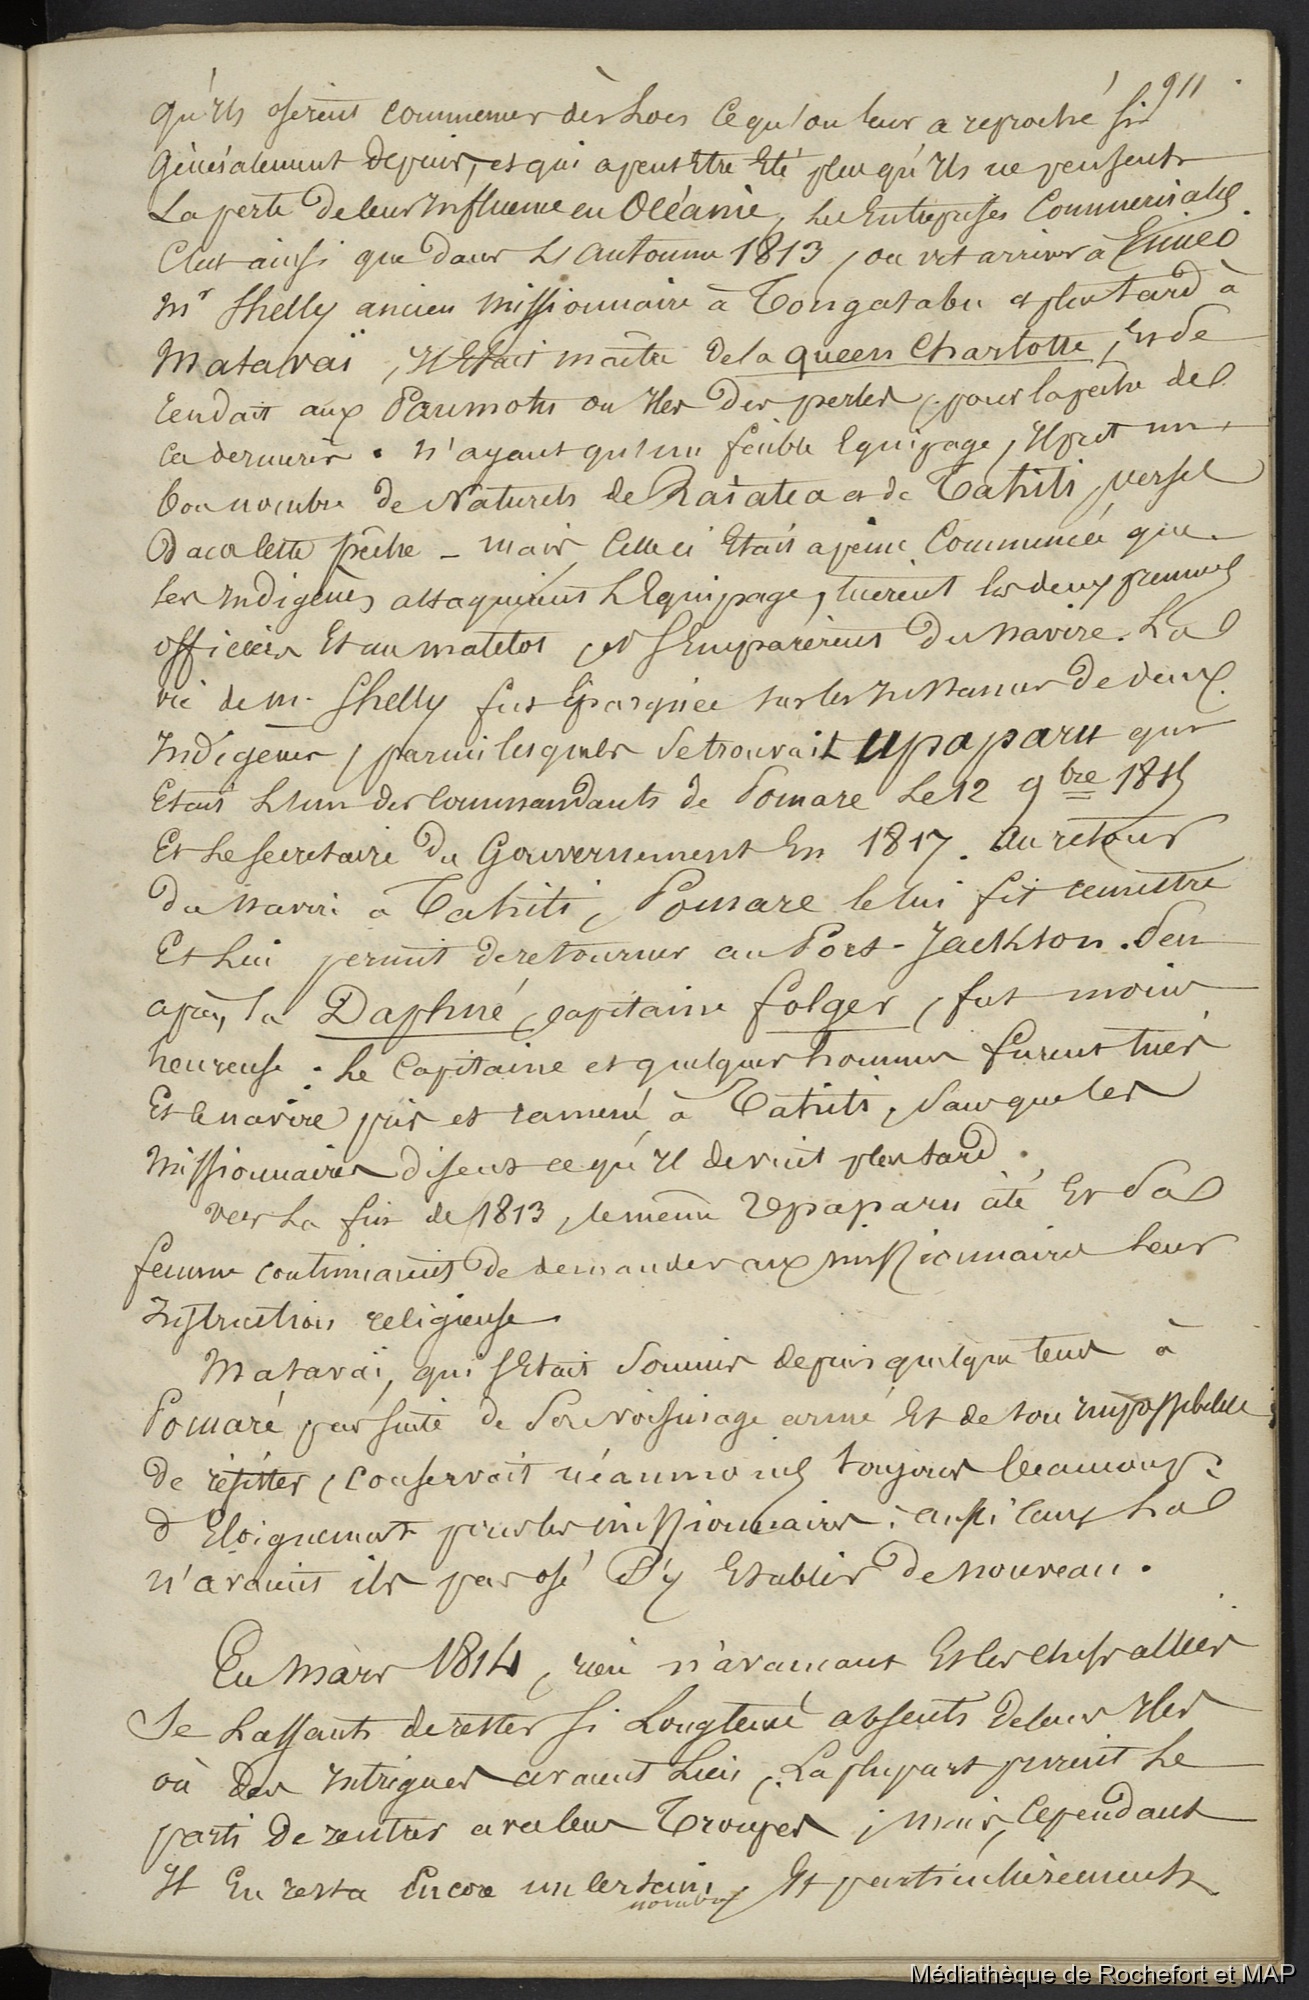 911
qu'ils osèrent commencer dès lors ce qu'on leur a reproché si
généralement depuis, et qui a peut être été plus qu'ils ne pensent
La perte de leur influence en Océanie, les Entreprises Commerciales.
C'est ainsi que dans L'automne 1813, on vit arriver à Eimeo
Mr Shelly ancien Missionnaire à Tongatabu et plus tard à
Mataraï, Il Etait maître de la queen Charlotte, Et se
rendait aux Paumotu ou Iles des perles, pour la pêche de
ca dernières. N'ayant qu'un faible Equipage, Il prit un
bon nombre de Naturels de Raiatea et de Tahiti, versé
dans cette pêche - mais Celle ci Etait apeine Commencée que
les Indigènes attaquèrent L'Equipage, tuèrent les deux premiers
officiers Et un matelot, et S'Emparèrent Du Navire. La
vie de M. Shelly fut Epargnée sur les Instances De deux
Indigènes, parmi lesquels Se trouvait upaparu qui
Etait L'un des Commandants de Pomare Le 12 9bre 1815
Et Le Secretaire Du Gouvernement En 1817. Au retour
Du Navire a Tahiti, Pomare le lui fit remettre
Et Lui permit de retourner au Port-Jackson. Peu
après, la Daphné, Capitaine folger, fut moins
heureuse. Le Capitaine et quelques hommes furent tués
Et le navire pris et ramené à Tahiti, Sans que les
Missionnaires disent ce qu'Il devint plus tard.
Vers La fin de 1813, le même Upaparu cité Et Sa
femme continuaient De demander aux missionnaires Leur
Instruction religieuse.
Mataraï, qui S'Etait Soumis depuis quelque tems à
Pomaré par suite de Son voisinage armé Et de son impossibilité
De résister, Conservait néanmoins toujours beaucoup
d'Eloignement pour les missionnaires; aussi ceux La
n'avaient ils pas osé S'y Etablir De nouveau.
En Mars 1814, rien n'avançant Et les chefs alliés
Se Lassants de rester si Longtems absents De leurs Iles
où Des Intrigues avaient Lieu, La plupart prirent Le
parti De rentrer avec leurs Troupes; mais, Cependant
Il En resta Encore un certain nombre, Et particulièrement
Médiathèque de Rochefort et MAP